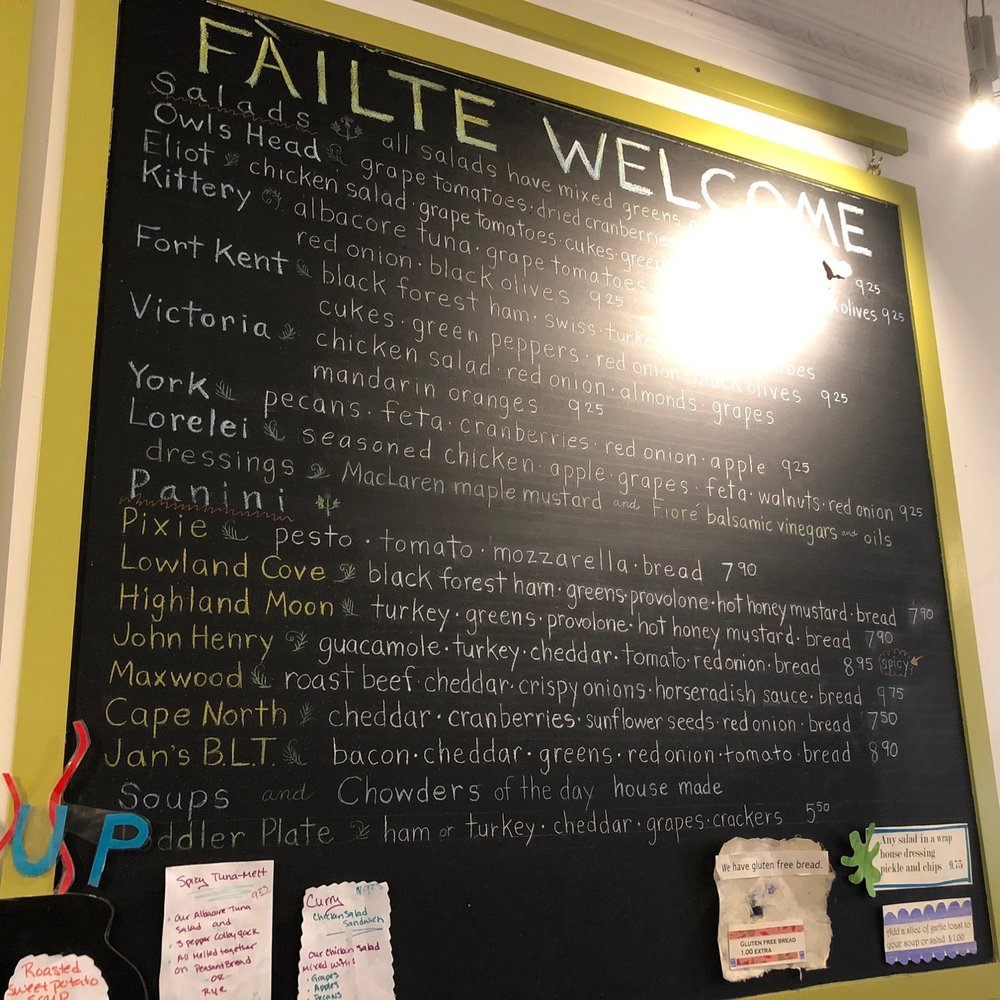 FÀILTE WELCOME
Salads all salads have mixed greens
Owls Head grape tomatoes · dried cranberries 9 25
Eliot chicken salad · grape tomatoes · cukes · green olives 9 25
Kittery albacore tuna · grape tomatoes
red onion · black olives 9 25
Fort Kent black forest ham · swiss · turkey
cukes · green peppers · red onion · black olives 9 25
Victoria chicken salad · red onion · almonds · grapes
mandarin oranges 9 25
York pecans · feta · cranberries · red onion · apple 9 25
Lorelei seasoned chicken · apple · grapes · feta · walnuts · red onion 9 25
dressings MacLaren maple mustard and Fiore balsamic vinegars and oils
Panini
Pixie pesto · tomato · mozzarella · bread 7 90
Lowland Cove black forest ham · greens · provolone · hot honey mustard · bread 7 90
Highland Moon turkey · greens · provolone · hot honey mustard · bread 7 90
John Henry guacamole · turkey · cheddar · tomato · red onion · bread 8 95 spicy
Maxwood roast beef · cheddar · crispy onions · horseradish sauce · bread 9 75
Cape North cheddar · cranberries · sunflower seeds · red onion · bread 7 50
Jan's B.L.T. bacon · cheddar · greens · red onion · tomato · bread 8 90
Soups and Chowders of the day house made
Plate ham or turkey · cheddar · grapes · crackers 5 50
UP
Roasted
Sweet Potato
Soup
Spicy Tuna-Melt
9.25
• Our Albacore Tuna
Salad and
• 3 Pepper Colby Jack
All Melled together
on Peasant Bread
OR
Rye
Curry
Chicken Salad
Sandwich
Our Chicken Salad
Mixed with:
• Grapes
• Apples
• Pecans
We have gluten free bread.
GLUTEN FREE BREAD
1.00 EXTRA
Any salad in a wrap
house dressing
pickle and chips 9.75
Add a slice of garlic toast to
your soup or salad $ 1.00